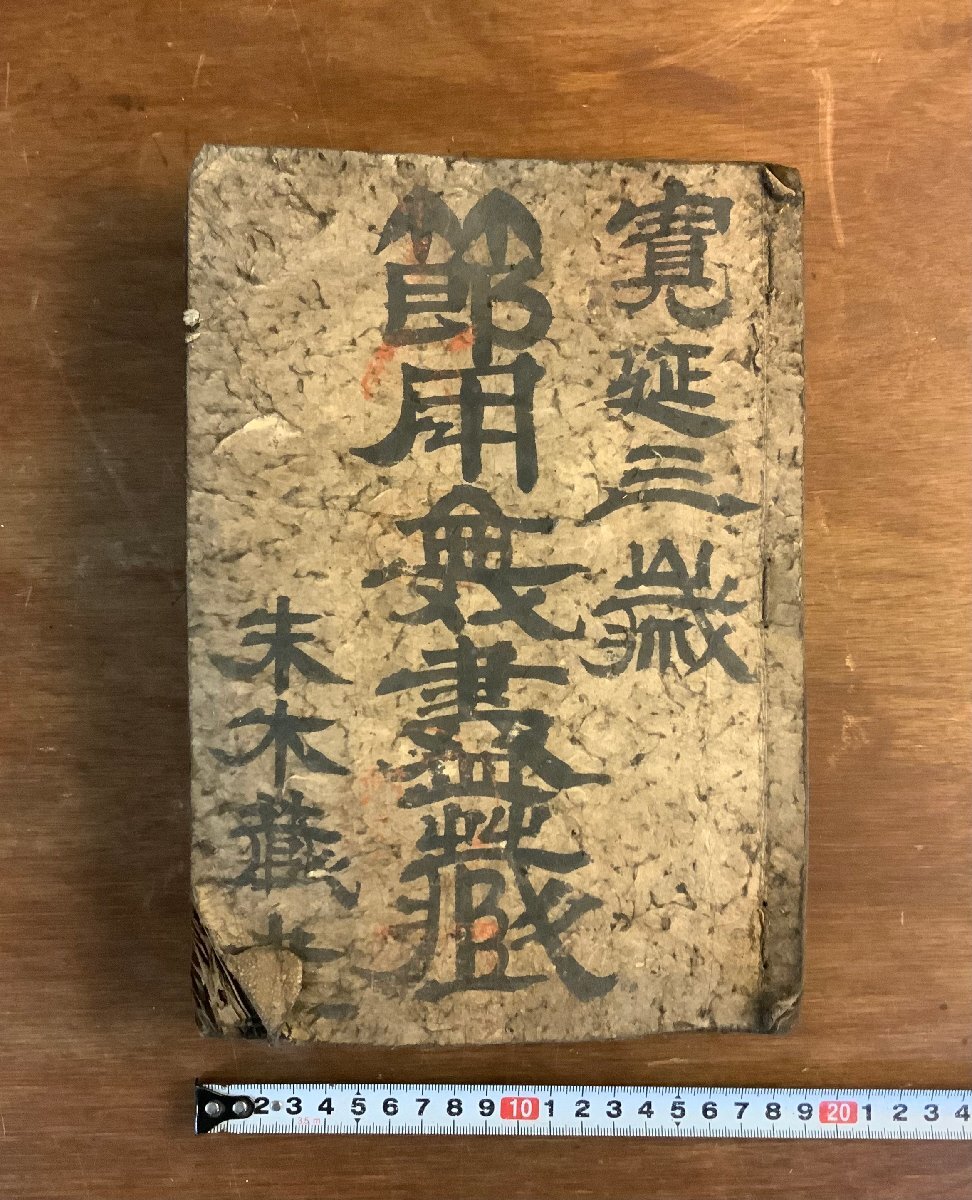 寶延三歳
節用無盡藏
末木藏書
2 3 4 5 6 7 8 9 10 1 2 3 4 5 6 7 8 9 20 1 2 3 4
3.5 m